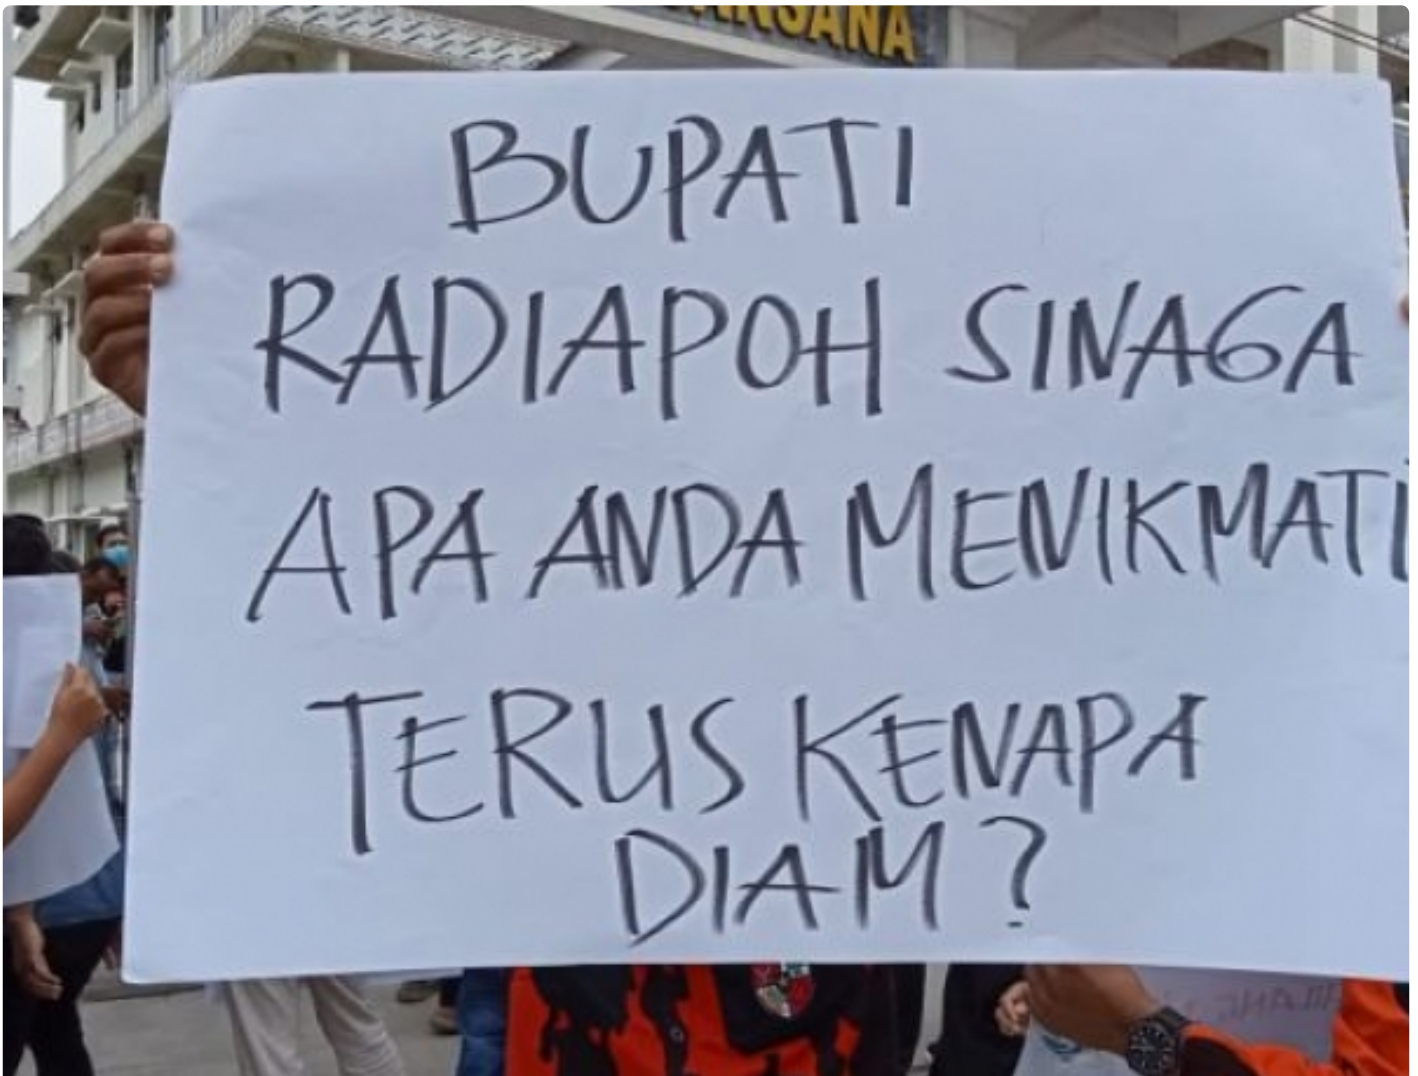 BUPATI
RADIAPOH SINAGA
APA ANDA MENIKMATI
TERUS KENAPA
DIAM?